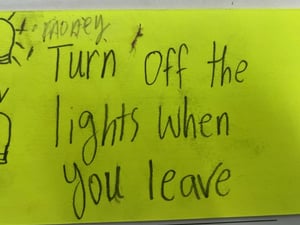 money
Turn Off the
lights when
you leave